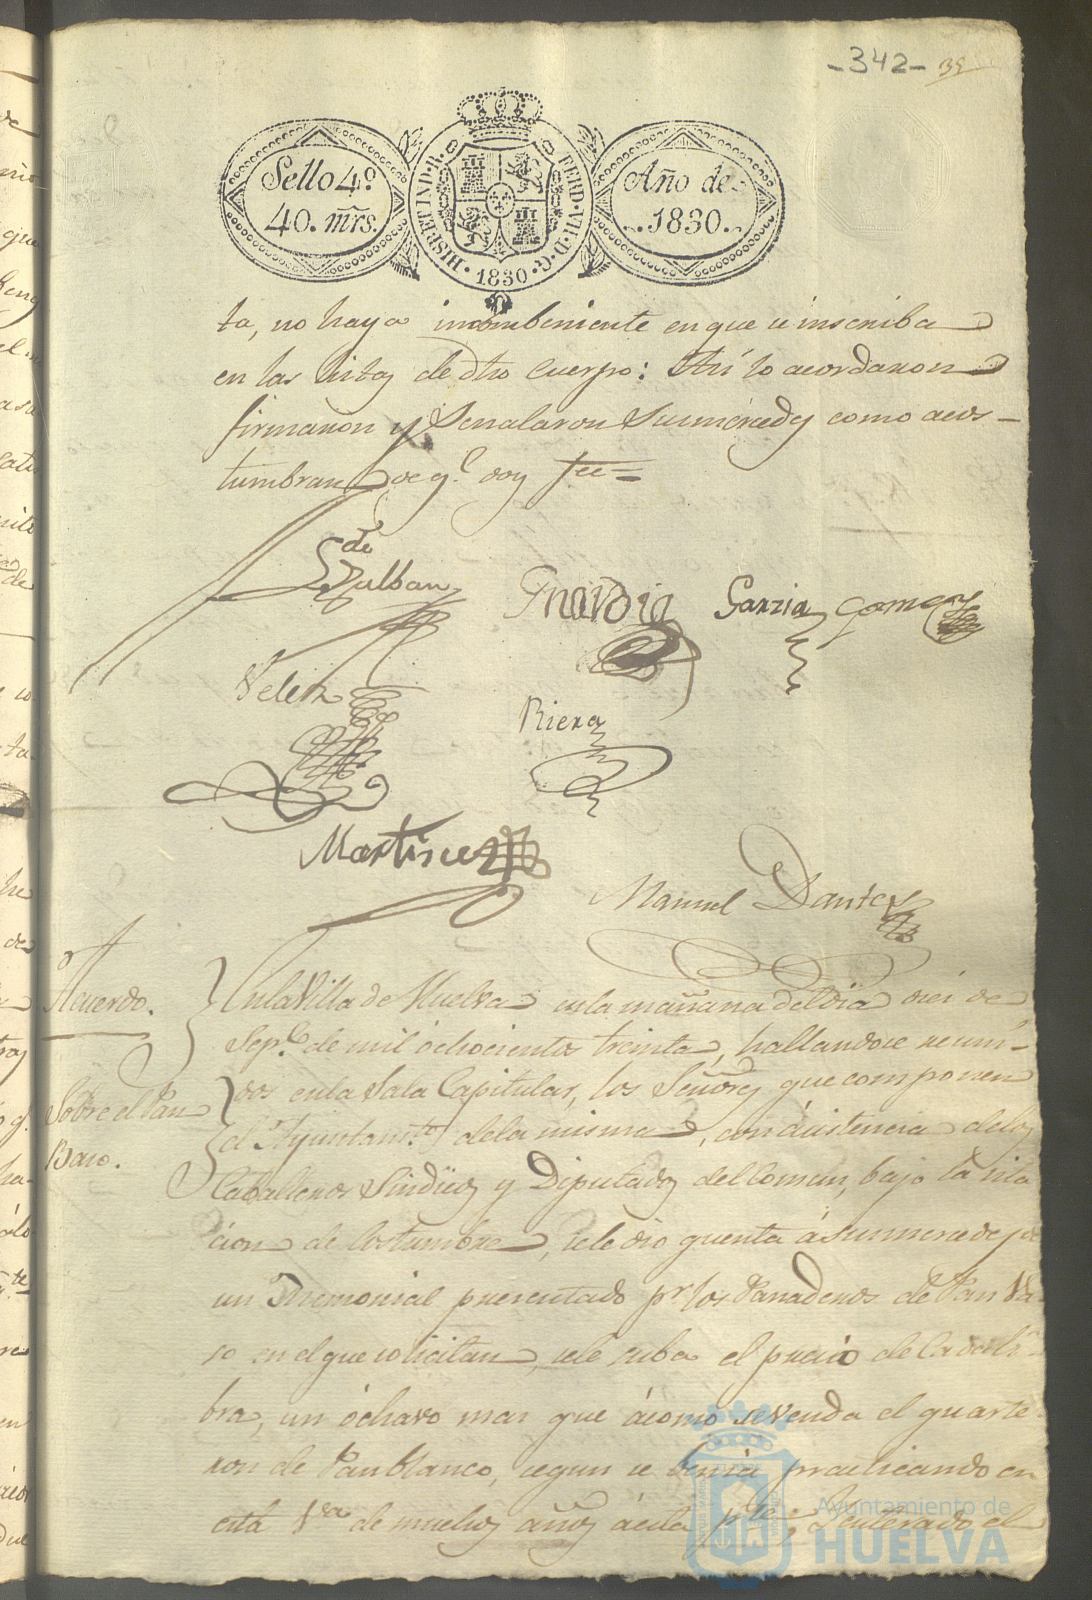 -342- 39
Sello 4º
40. mrs.
HISP. ET IND. R. FERD. VII. D. G.
1830
Año de
1830.
ta, no haya incombeniente en que se inscriba
en las listas de dho Cuerpo: Así lo acordaron
firmaron y Señalaron Sus mercedes como acos-
tumbran de q.e doy fee=
de
Zalban
Guardia Garzia Gomez
Velez
Riera
Martinez
Manuel Dante
Acuerdo.
Sobre el Pan
Bazo.
En la Villa de Huelva en la mañana del dia diez de
Sep.e de mil ochocientos treinta, hallandose reuni-
dos en la Sala Capitular, los Señores que componen
el Ayuntam.to de la misma, con asistencia de los
Caballeros Sindicos y Diputados del Comun, bajo la cita
cion de costumbre, se le dio quenta á sus mercedes de
un Memorial presentado p.r los Panaderos de Pan Ba
so en el que solicitan, se le suba el precio de Cada li
bra, un óchavo mas que ácomo se venda el quarte
ron de Pan blanco, segun se benia practicando en
esta V.a de muchos años áesta p.te; Y enterado el
Ayuntamiento de
HUELVA